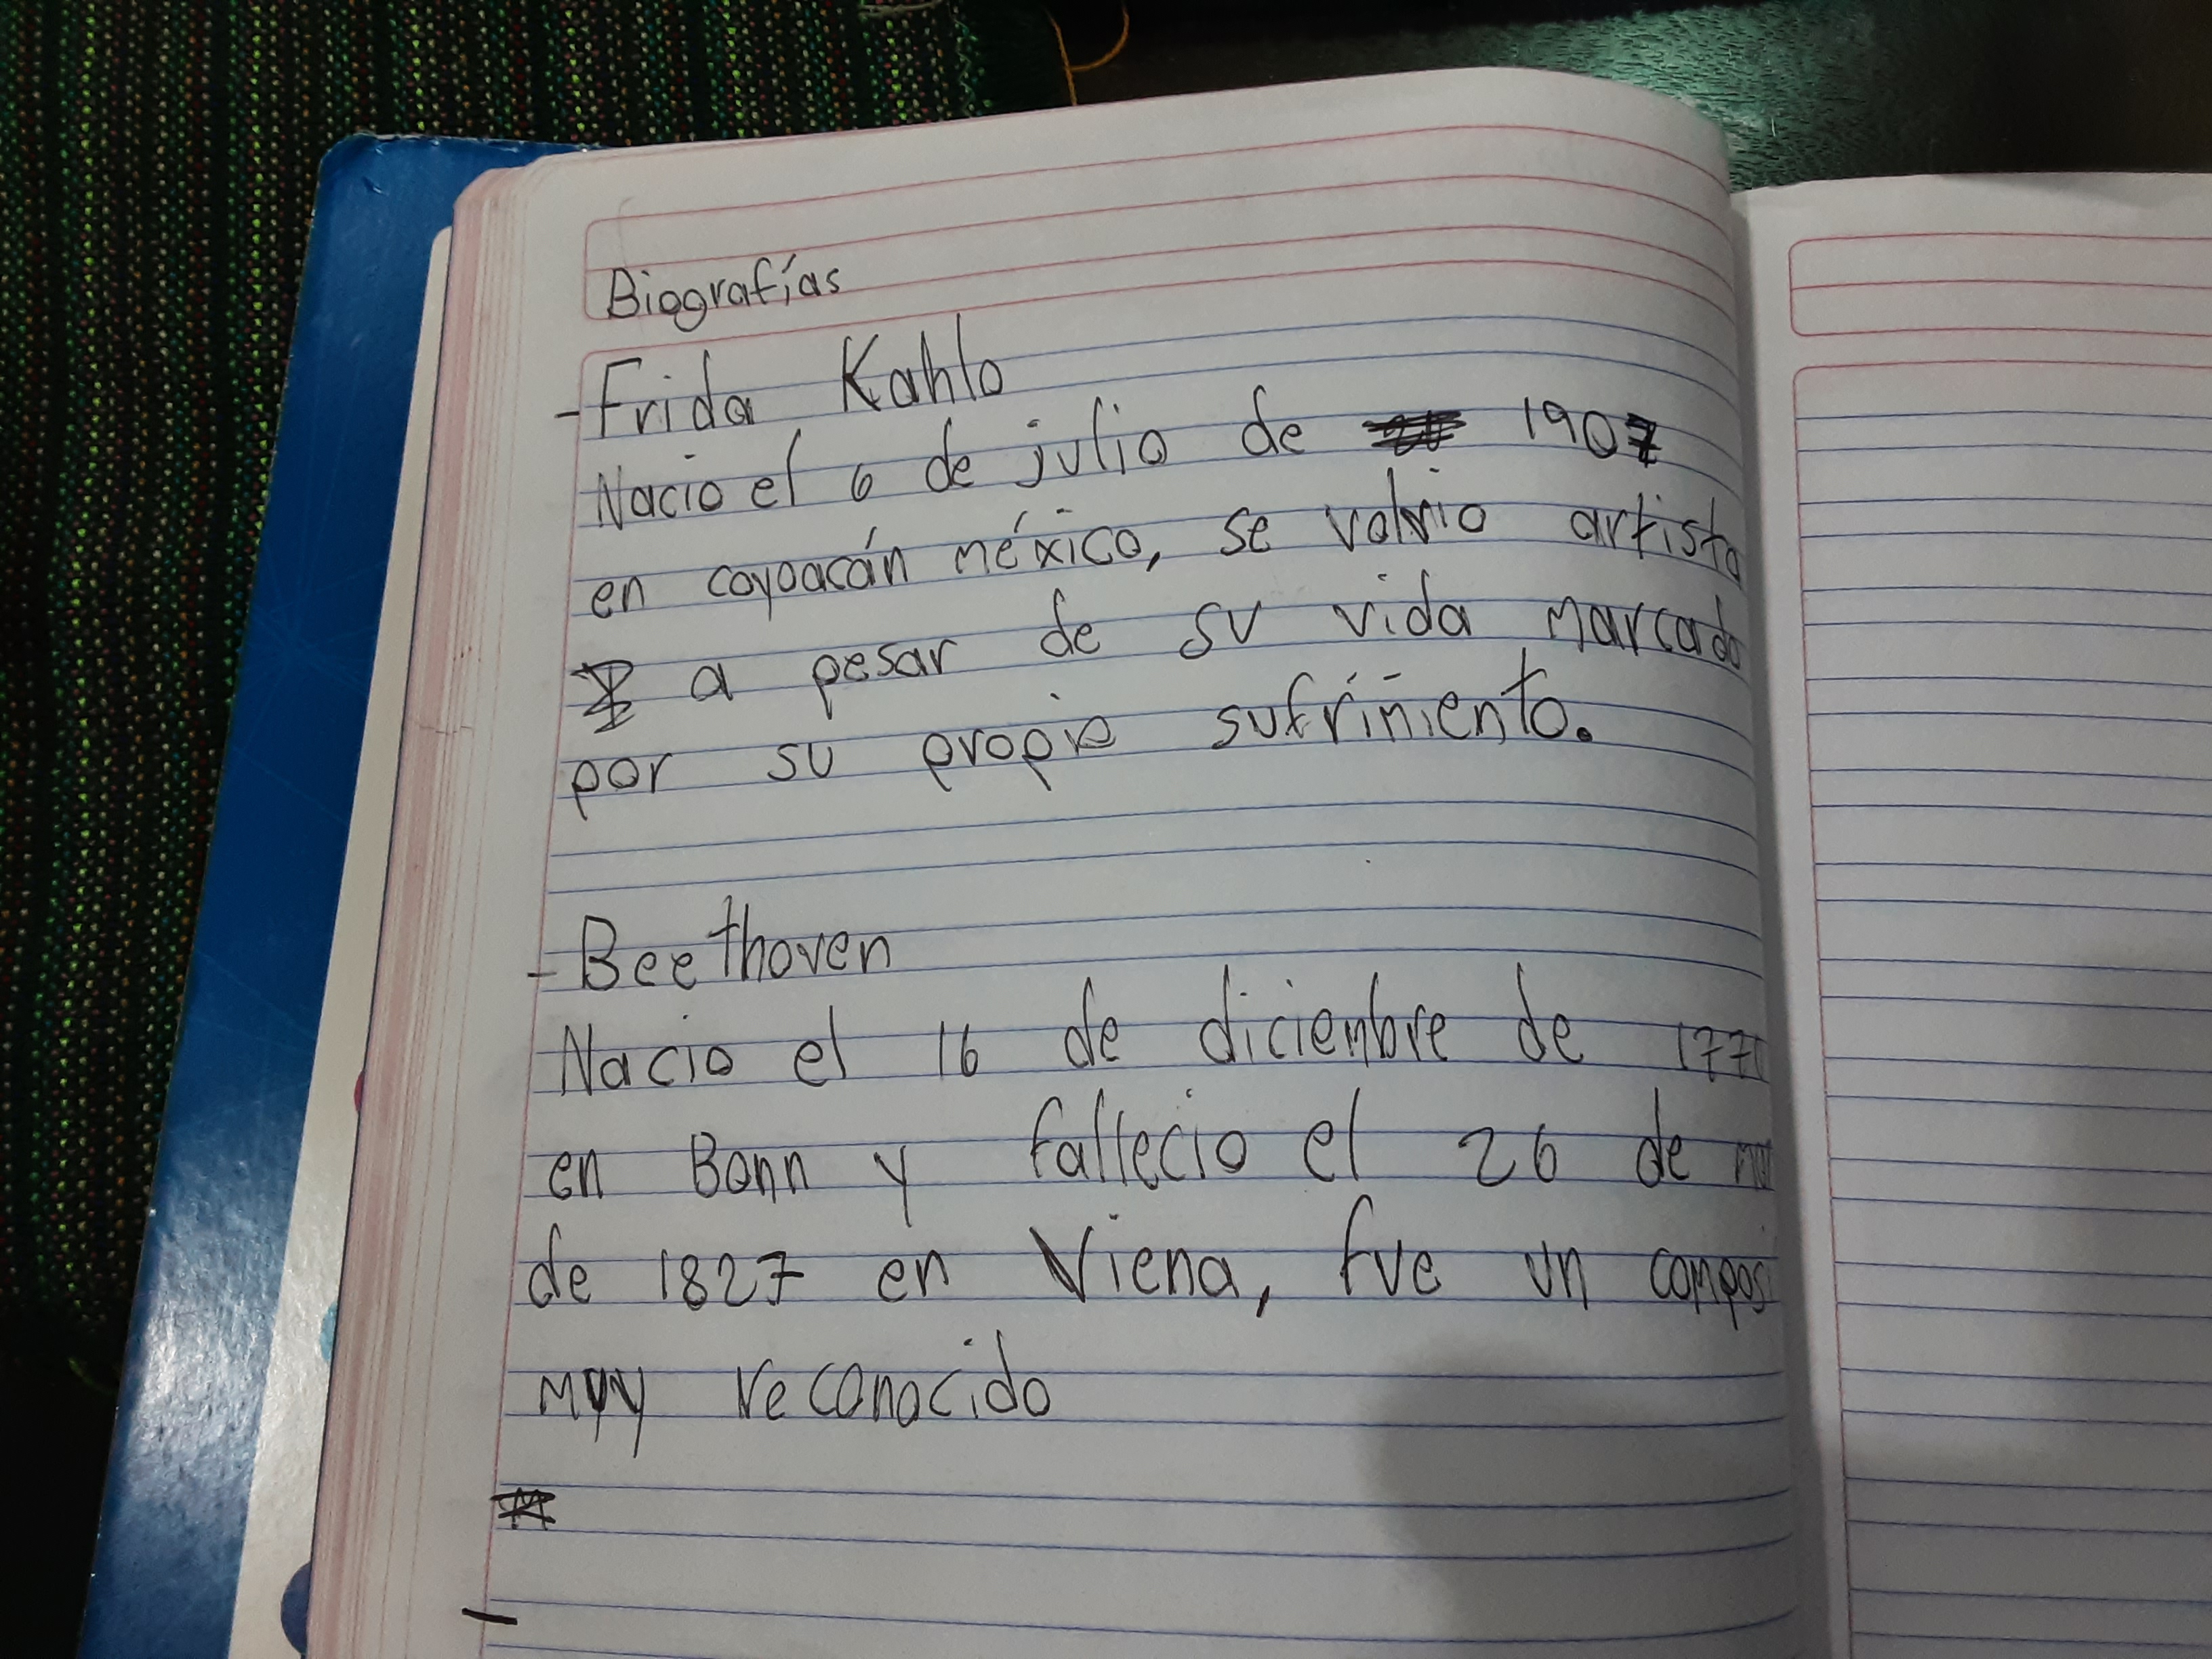 Biografías
-Frida Kahlo
Nacio el 6 de julio de 1907
en coyoacán méxico, se volvio artista
a pesar de su vida marcada
por su propio sufrimiento.
-Beethoven
Nacio el 16 de diciembre de 1770
en Bonn y fallecio el 26 de
de 1827 en Viena, fue un compos
muy reconocido